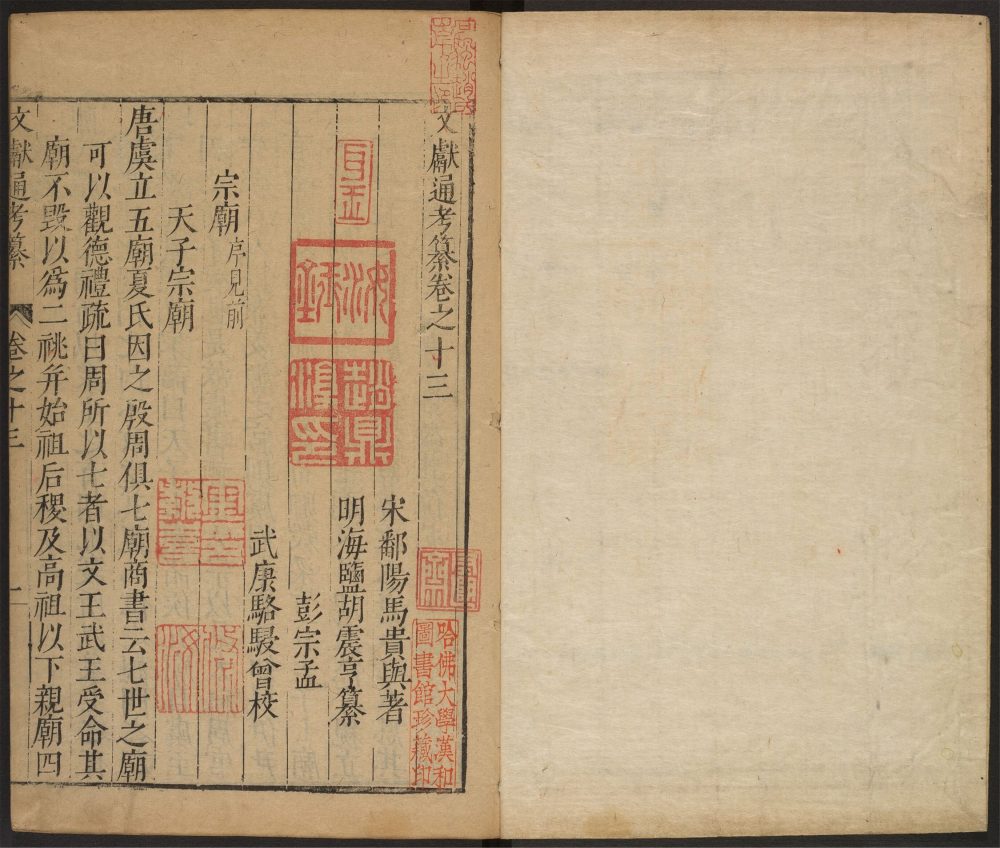 文獻通考纂卷之十三
宋鄱陽馬貴與著
明海鹽胡震亨纂
彭宗孟
武康駱駸曾校
宗廟序見前
天子宗廟
唐虞立五廟夏氏因之殷周俱七廟商書云七世之廟
可以觀德禮疏曰周所以七者以文王武王受命其
廟不毀以為二祧并始祖后稷及高祖以下親廟四
文獻通考纂
卷之十三
一
哈佛大學漢和
圖書館珍藏印